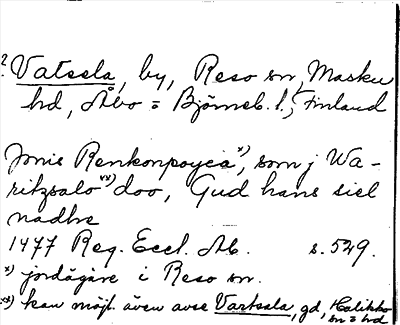 ? Vatsela, by, Reso sn, Masku
hd, Åbo = Björneb. l., Finland
Jönis Renkonpoyca x), som j Wa-
ritzsalo xx) doo, Gud hans siel
nadhe
1477 Reg. Eccl. Ab. s. 529.
x) jordägare i Reso sn.
xx) kan möjl. även avse Vartsala, gd, Halikko
sn = hd